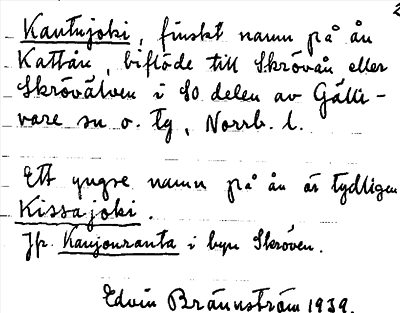 2
Kautujoki, finskt namn på ån
Kattån, biflöde till Skrövån eller
Skrövälven i SO delen av Gälli-
vare sn o. tg, Norrb. l.
Ett yngre namn på ån är tydligen
Kissajoki.
Jfr. Kaujouranta i byn Skröven.
Edvin Brännström 1939.